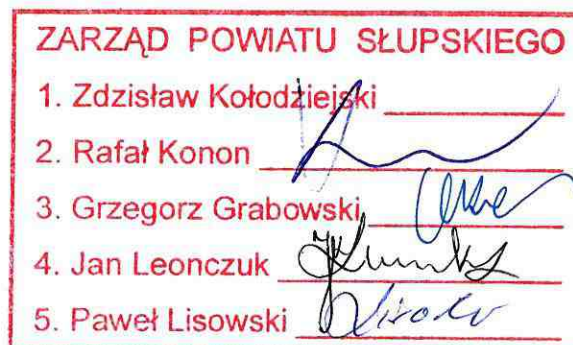 ZARZĄD POWIATU SŁUPSKIEGO
1. Zdzisław Kołodziejski
2. Rafał Konon
3. Grzegorz Grabowski
4. Jan Leonczuk
5. Paweł Lisowski